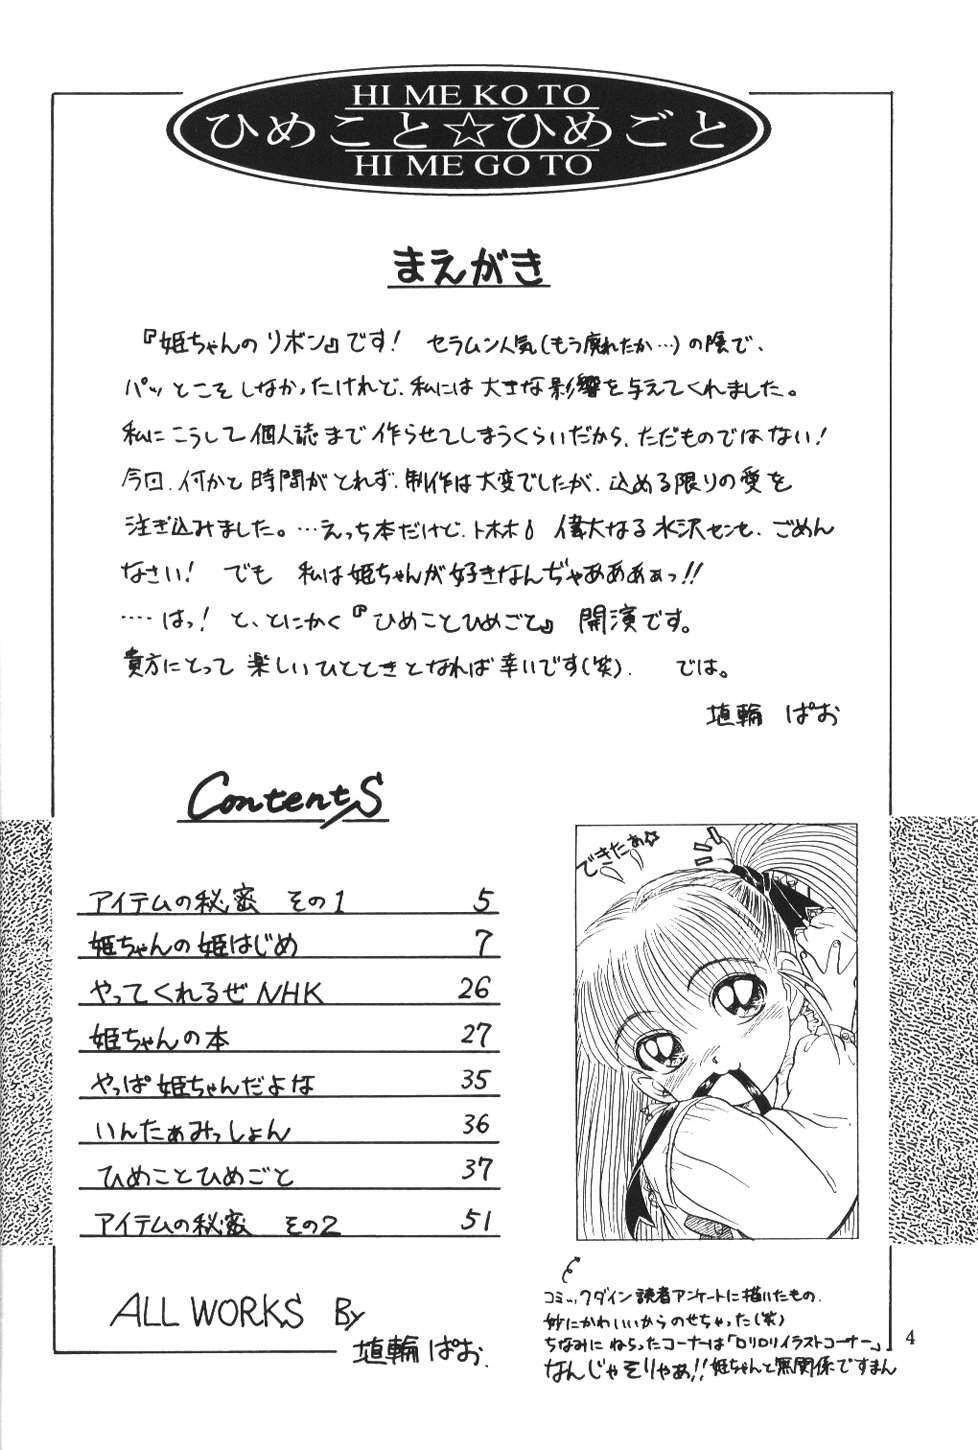 HI ME KO TO
ひめこと☆ひめごと
HI ME GO TO
まえがき
『姫ちゃんのリボン』です! セラムン人気(もう廃れたか…)の陰で、
パッとこそしなかったけれど、私には大きな影響を与えてくれました。
私にこうして個人誌まで作らせてしまうくらいだから、ただものではない!
今回、何かと時間がとれず、制作は大変でしたが、込める限りの愛を
注ぎ込みました。…えっち本だけど、トホホ 偉大なる水沢センセ、ごめん
なさい! でも 私は姫ちゃんが好きなんぢゃあああぁっ!!
……はっ! と、とにかく『ひめことひめごと』 開演です。
貴方にとって楽しいひとときとなれば幸いです(笑). では。
埴輪 ぱお
Contents
アイテムの秘密 その1 5
姫ちゃんの姫はじめ 7
やってくれるぜNHK 26
姫ちゃんの本 27
やっぱ姫ちゃんだよな 35
いんたぁみっしょん 36
ひめことひめごと 37
アイテムの秘密 その2 51
できたぁ☆
ALL WORKS By
埴輪ぱお.
コミックダイン読者アンケートに描いたもの.
妙にかわいいからのせちゃった(笑)
ちなみにねらったコーナーは「ロリロリイラストコーナー」
なんじゃそりゃあ!!姫ちゃんと無関係ですまん
4